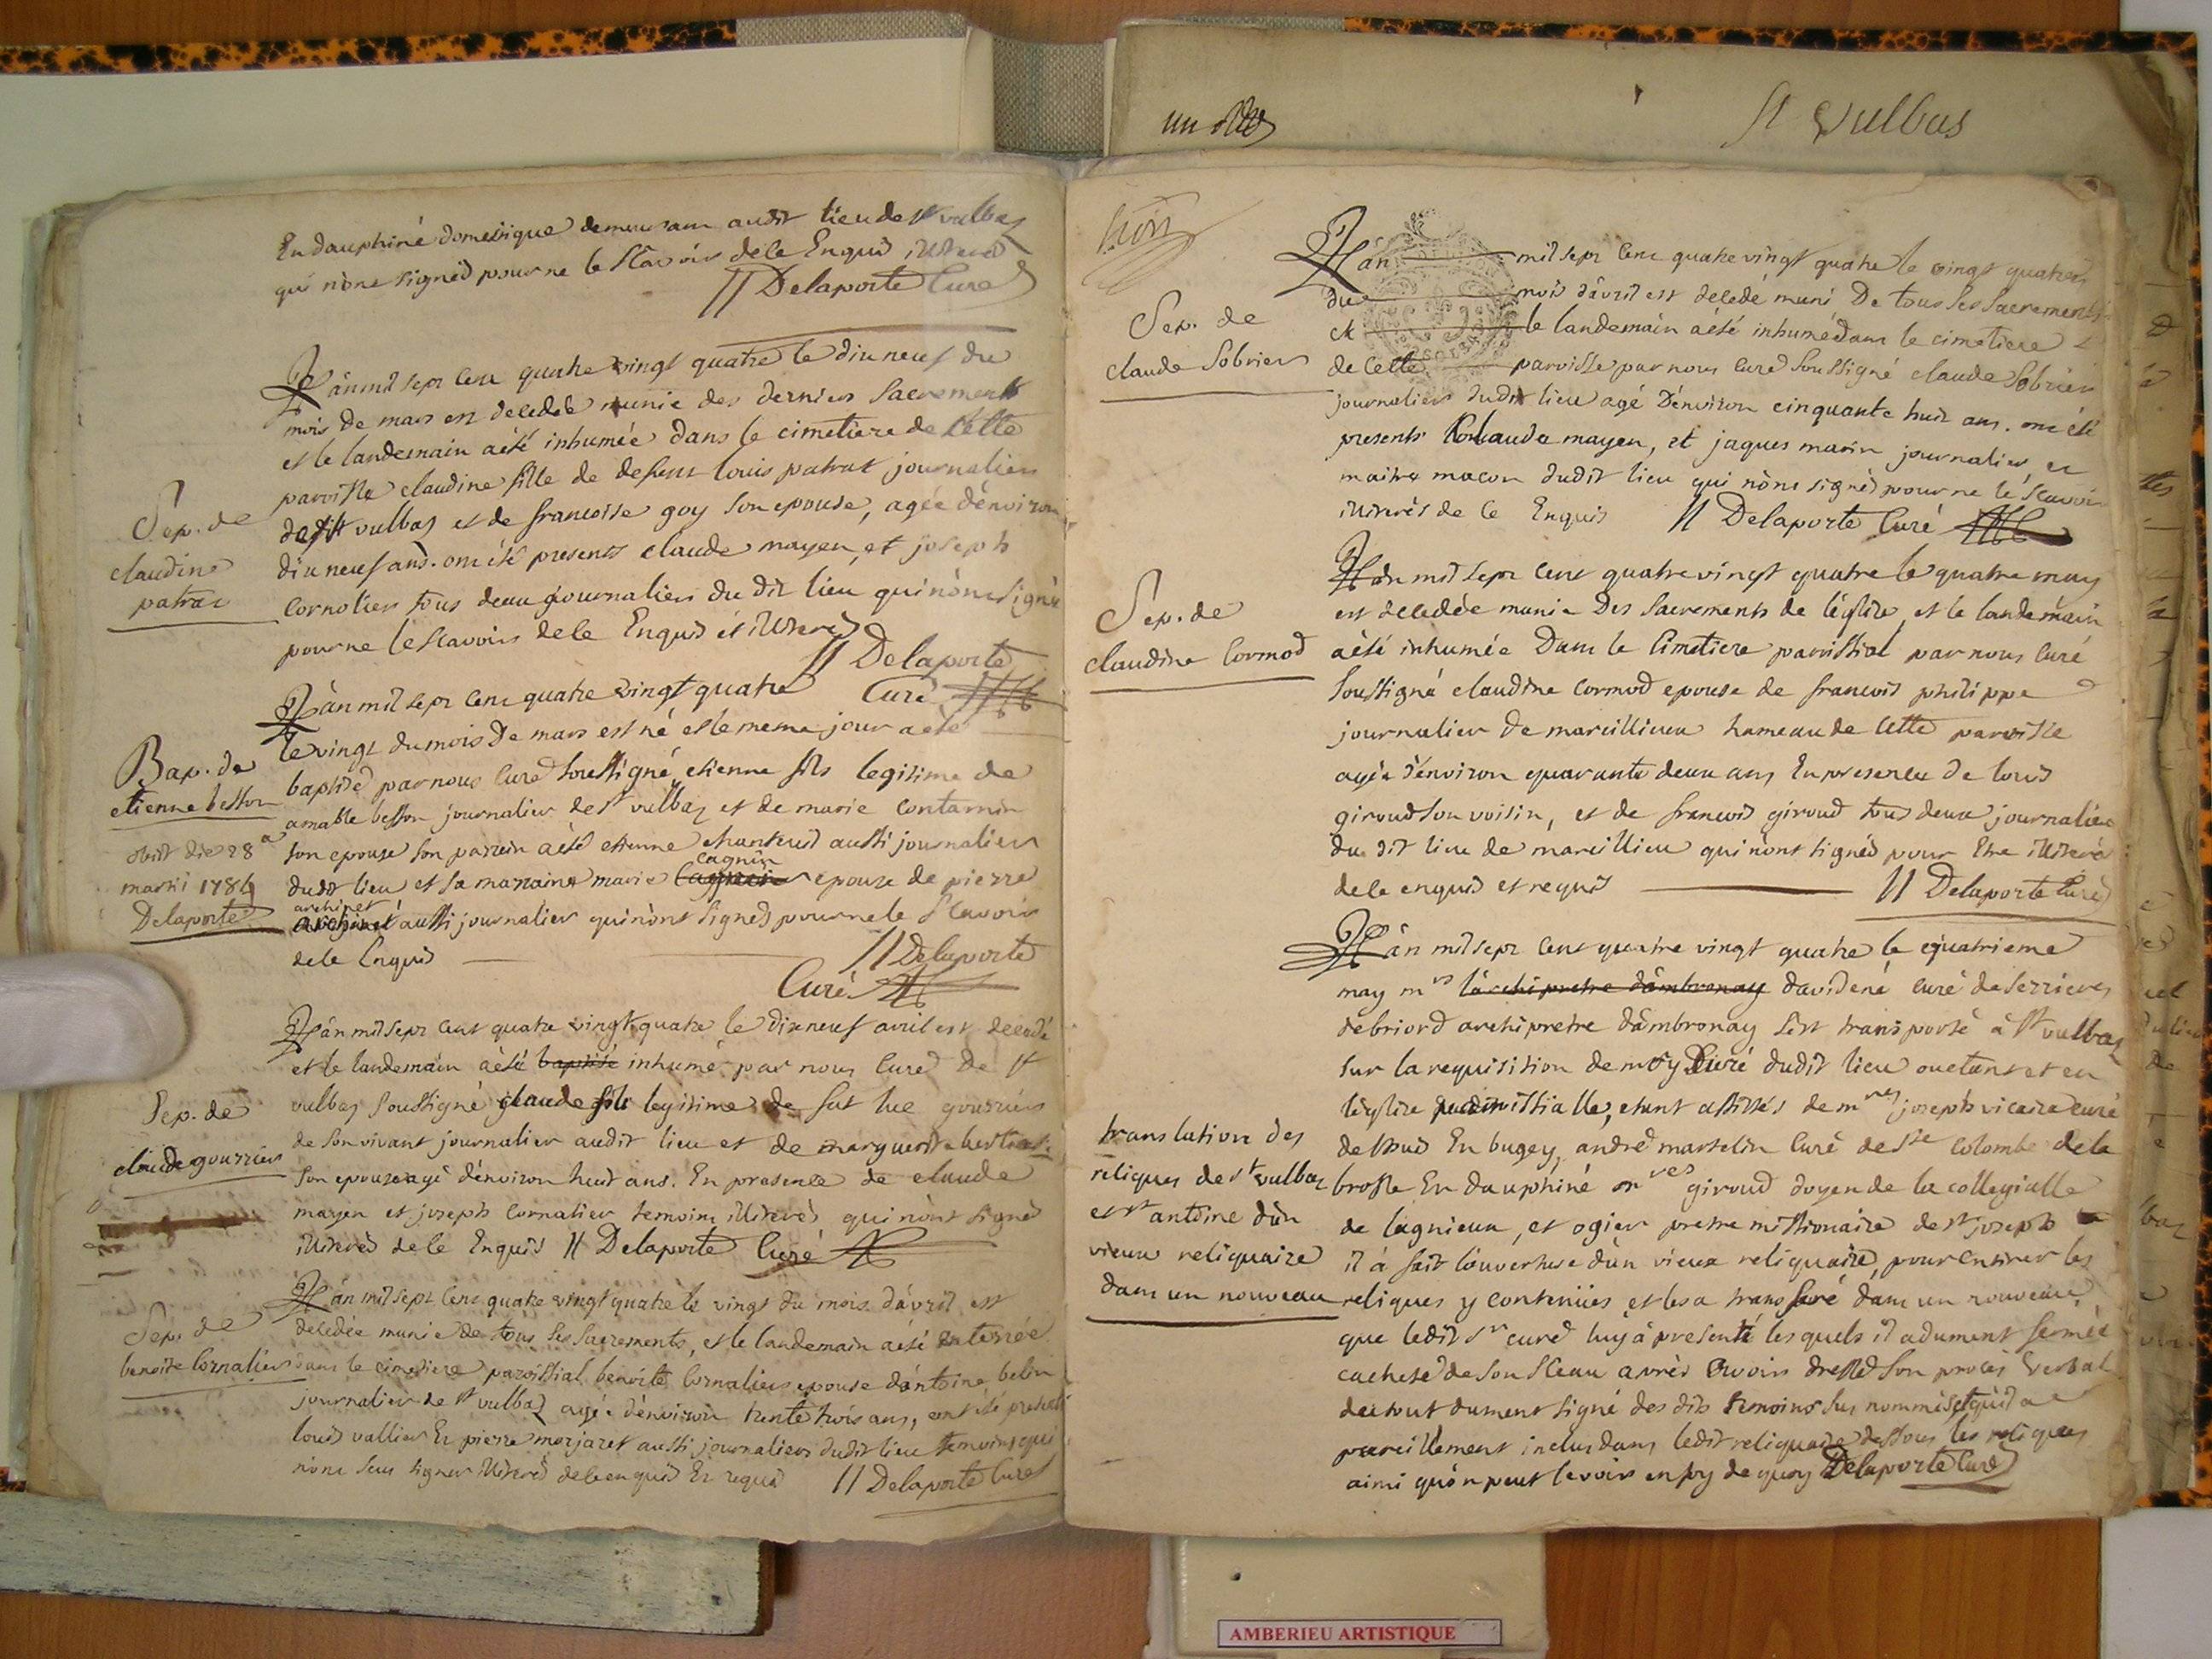 St Vulbas
En dauphiné domestique demeurant audit lieu de st vulbas
qui n'ont signés pour ne le sçavoir de ce Enquis illiterés
// Delaporte Curé
L'an mil sept cent quatre vingt quatre le dix neuf du
mois de mars est decedée munie des derniers sacrements
et le landemain a été inhumée dans le cimetiere de cette
parroisse claudine fille de defunt louis patrat journalier
de st vulbas et de francoise goy son epouse, agée d'environ
dix neuf ans. ont été presents claude mayen, et joseph
cornolier tous deux journaliers du dit lieu qui n'ont signé
pour ne le sçavoir de ce Enquis et illiterés
// Delaporte
Curé
Sep. de
claudine
patrat
L'an mil sept cent quatre vingt quatre
le vingt du mois de mars est né et le meme jour a été
baptisé par nous Curé soussigné, etienne fils legitime de
amable besson journalier de st vulbas et de marie contamin
son epouse son parrein a été etienne chanteur aussi journalier
cagnin
dudit lieu et sa marraine marie epouse de pierre
archinet
aussi journalier qui n'ont signés pour ne le sçavoir
de ce Enquis
// Delaporte
Curé
Bap. de
etienne besson
obiit die 28a
martii 1784
Delaporte
L'an mil sept cent quatre vingt quatre le dix neuf avril est decedé
et le landemain a été baptisé inhumé par nous Curé de st
vulbas soussigné claude fils legitime de fut luc gourrier
de son vivant journalier audit lieu et de marguerite
son epouse agé d'environ huit ans. En presence de claude
mayen et joseph cornalier temoins illiterés qui n'ont signé
illiterés de ce Enquis // Delaporte Curé
Sep. de
claude gourrier
L'an mil sept cent quatre vingt quatre le vingt du mois d'avril est
decedée munie de tous ses sacrements, et le landemain a été enterrée
dans le cimetiere paroissial benoite Cornalier epouse d'antoine belin
journalier de st vulbas agée d'environ trente trois ans, ont été presents
louis vallier Et pierre morjaret aussi journaliers dudit lieu temoins qui
n'ont seus signer illiterés de ce enquis Et requis // Delaporte Curé
Sep. de
benoite Cornalier
L'an mil sept cent quatre vingt quatre le vingt quatre
du mois d'avril est decedé muni De tous ses sacrements
et le landemain a été inhumé dans le cimetiere
de cette parroisse par nous Curé soussigné claude sobrier
journalier dudit lieu agé D'environ cinquante huit ans. ont été
presents claude mayen, et jaques marin journalier, et
maitre macon dudit lieu qui n'ont signés pour ne le sçavoir
illiterés de ce Enquis // Delaporte Curé
Sep. de
claude sobrier
L'an mil sept cent quatre vingt quatre le quatre may
est decedée munie Des sacrements de l'église, et le landemain
a été inhumée Dans le Cimetiere parroissial par nous Curé
soussigné claudine cormod epouse de francois philippe
journalier de marcillieux hameau de cette paroisse
agée d'environ quarante deux ans En presence de louis
giroud son voisin, et de francois giroud tous deux journaliers
du dit lieu de marcillieu qui n'ont signés pour Etre illiterés
de ce enquis et requis // Delaporte Curé
Sep. de
claudine Cormod
L'an mil sept cent quatre vingt quatre le quatrieme
may mre l'archipretre d'ambronay davidené curé de serrieres
de briord archipretre d'ambronay s'est transporté à st vulbas
sur la requisition de moy Curé dudit lieu ou etant et en
l'église parroissialle, etant assistés de mres joseph vicaire curé
de En bugey, andré martelin Curé de ste Colombe de la
brosse En dauphiné mres giroud doyen de la collegialle
de lagnieux, et ogier pretre missionaire de st joseph
il à fait l'ouverture d'un vieux reliquaire, pour en tirer les
reliques y contenües et les a transferé dans un nouveau
que ledit sr curé luy à presenté les quels il a dument fermé
cacheté de son sceau aprés avoir dressé son procés verbal
de tout dument signé des dits temoins sus nommés et qu'il a
pareillement inclus dans ledit reliquaire dessous les reliques
ainsi qu'on peut le voir en foy de quoy Delaporte Curé
translation des
reliques de st vulbas
et st antoine d'un
vieux reliquaire
dans un nouveau
AMBERIEU ARTISTIQUE